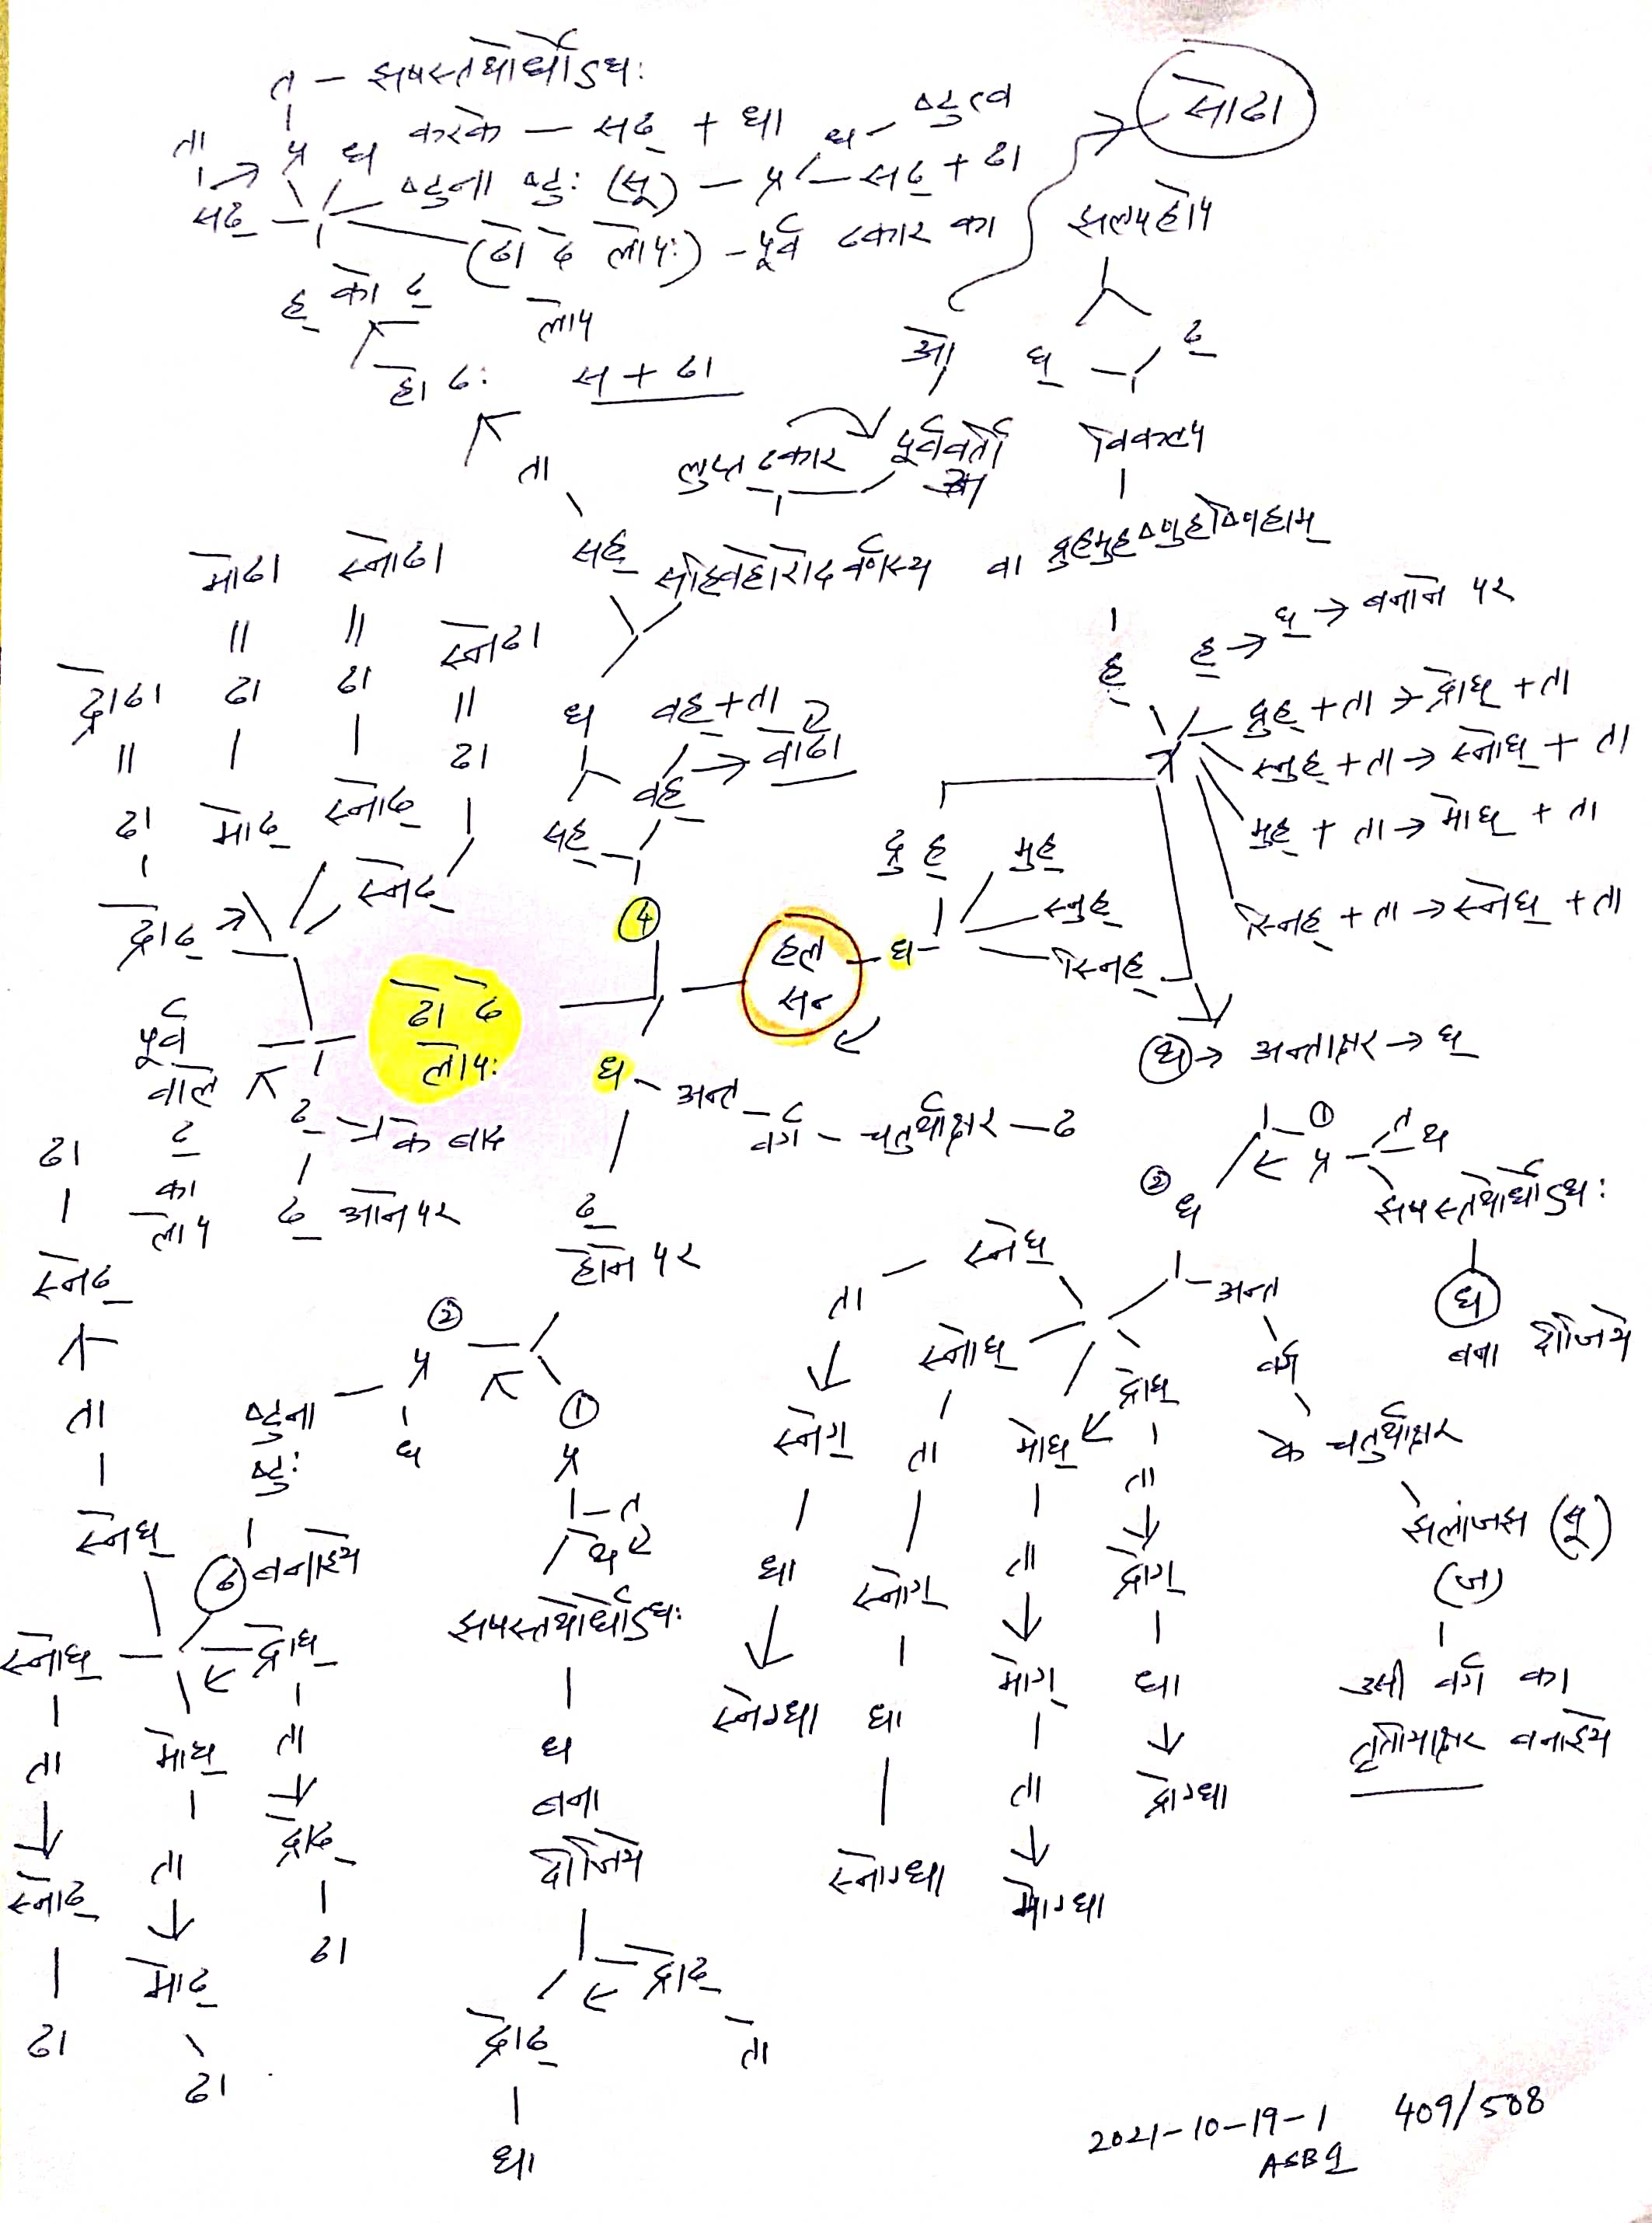 त - झषस्तथोर्धोऽधः
ता प्र ध करके - सढ् + धा ध - ष्टुत्व
सढ् ष्टुना ष्टुः (सू) - प्र - सढ् + ढा
(ढो ढे लोपः) - पूर्व ढकार का
ह् को ढ् लोप
हो ढः स + ढा
सोढा
झल् पदे
ओ घ् ढ्
ता लुप्त ढकार पूर्ववर्ती अ
विकल्प
सह् सहिवहोरोदवर्णस्य वा द्रुहमुहष्णुहष्णिहाम्
मोढा स्नोढा स्नेढा
द्रोढा ढा ढा
ढा वह् + ता
सह् वह् → वोढा
ढा मोढ् स्नोढ्
द्रोढ् स्नेढ्
④
ह् ह् → घ् → बनाने पर
द्रुह् + ता → द्रोघ् + ता
स्नुह् + ता → स्नोघ् + ता
मुह् + ता → मोघ् + ता
स्निह् + ता → स्नेघ् + ता
द्रुह् मुह्
स्नुह्
स्निह्
हल् सन्
ढो ढे
लोपः
पूर्व वाले ढ् का लोप
ढ् → के बाद
ढ् आने पर
ध - अन्त - वर्ग - चतुर्थाक्षर - ढ
ढ् होने पर
घ → अन्ताक्षर → घ्
① प्र त थ
② घ झषस्तथोर्धोऽधः
ध बना दीजिये
अन्त
वर्ग
के चतुर्थाक्षर
झलांजश (सू)
(ज)
उसी वर्ग का
तृतीयाक्षर बनाइये
स्नेघ् ता स्नेग् धा स्नेग्धा
स्नोघ् ता स्नोग् धा स्नोग्धा
मोघ् ता मोग् ता मोग्धा
द्रोघ् ता द्रोग् धा द्रोग्धा
② प्र ध ष्टुना ष्टुः
ढ बनाइये
① प्र त थ
झषस्तथोर्धोऽधः
ध
बना
दीजिये
द्रोढ् ता
द्रोढ्
धा
ढा
स्नेढ्
ता
स्नेघ्
स्नोघ् ता स्नोढ् ढा
मोघ् ता मोढ् ढा
द्रोघ् ता द्रोढ् ढा
2021-10-19-1 409/508
ASB९